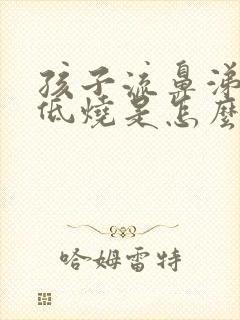 孩子流鼻涕
低燒是怎麼
哈姆雷特